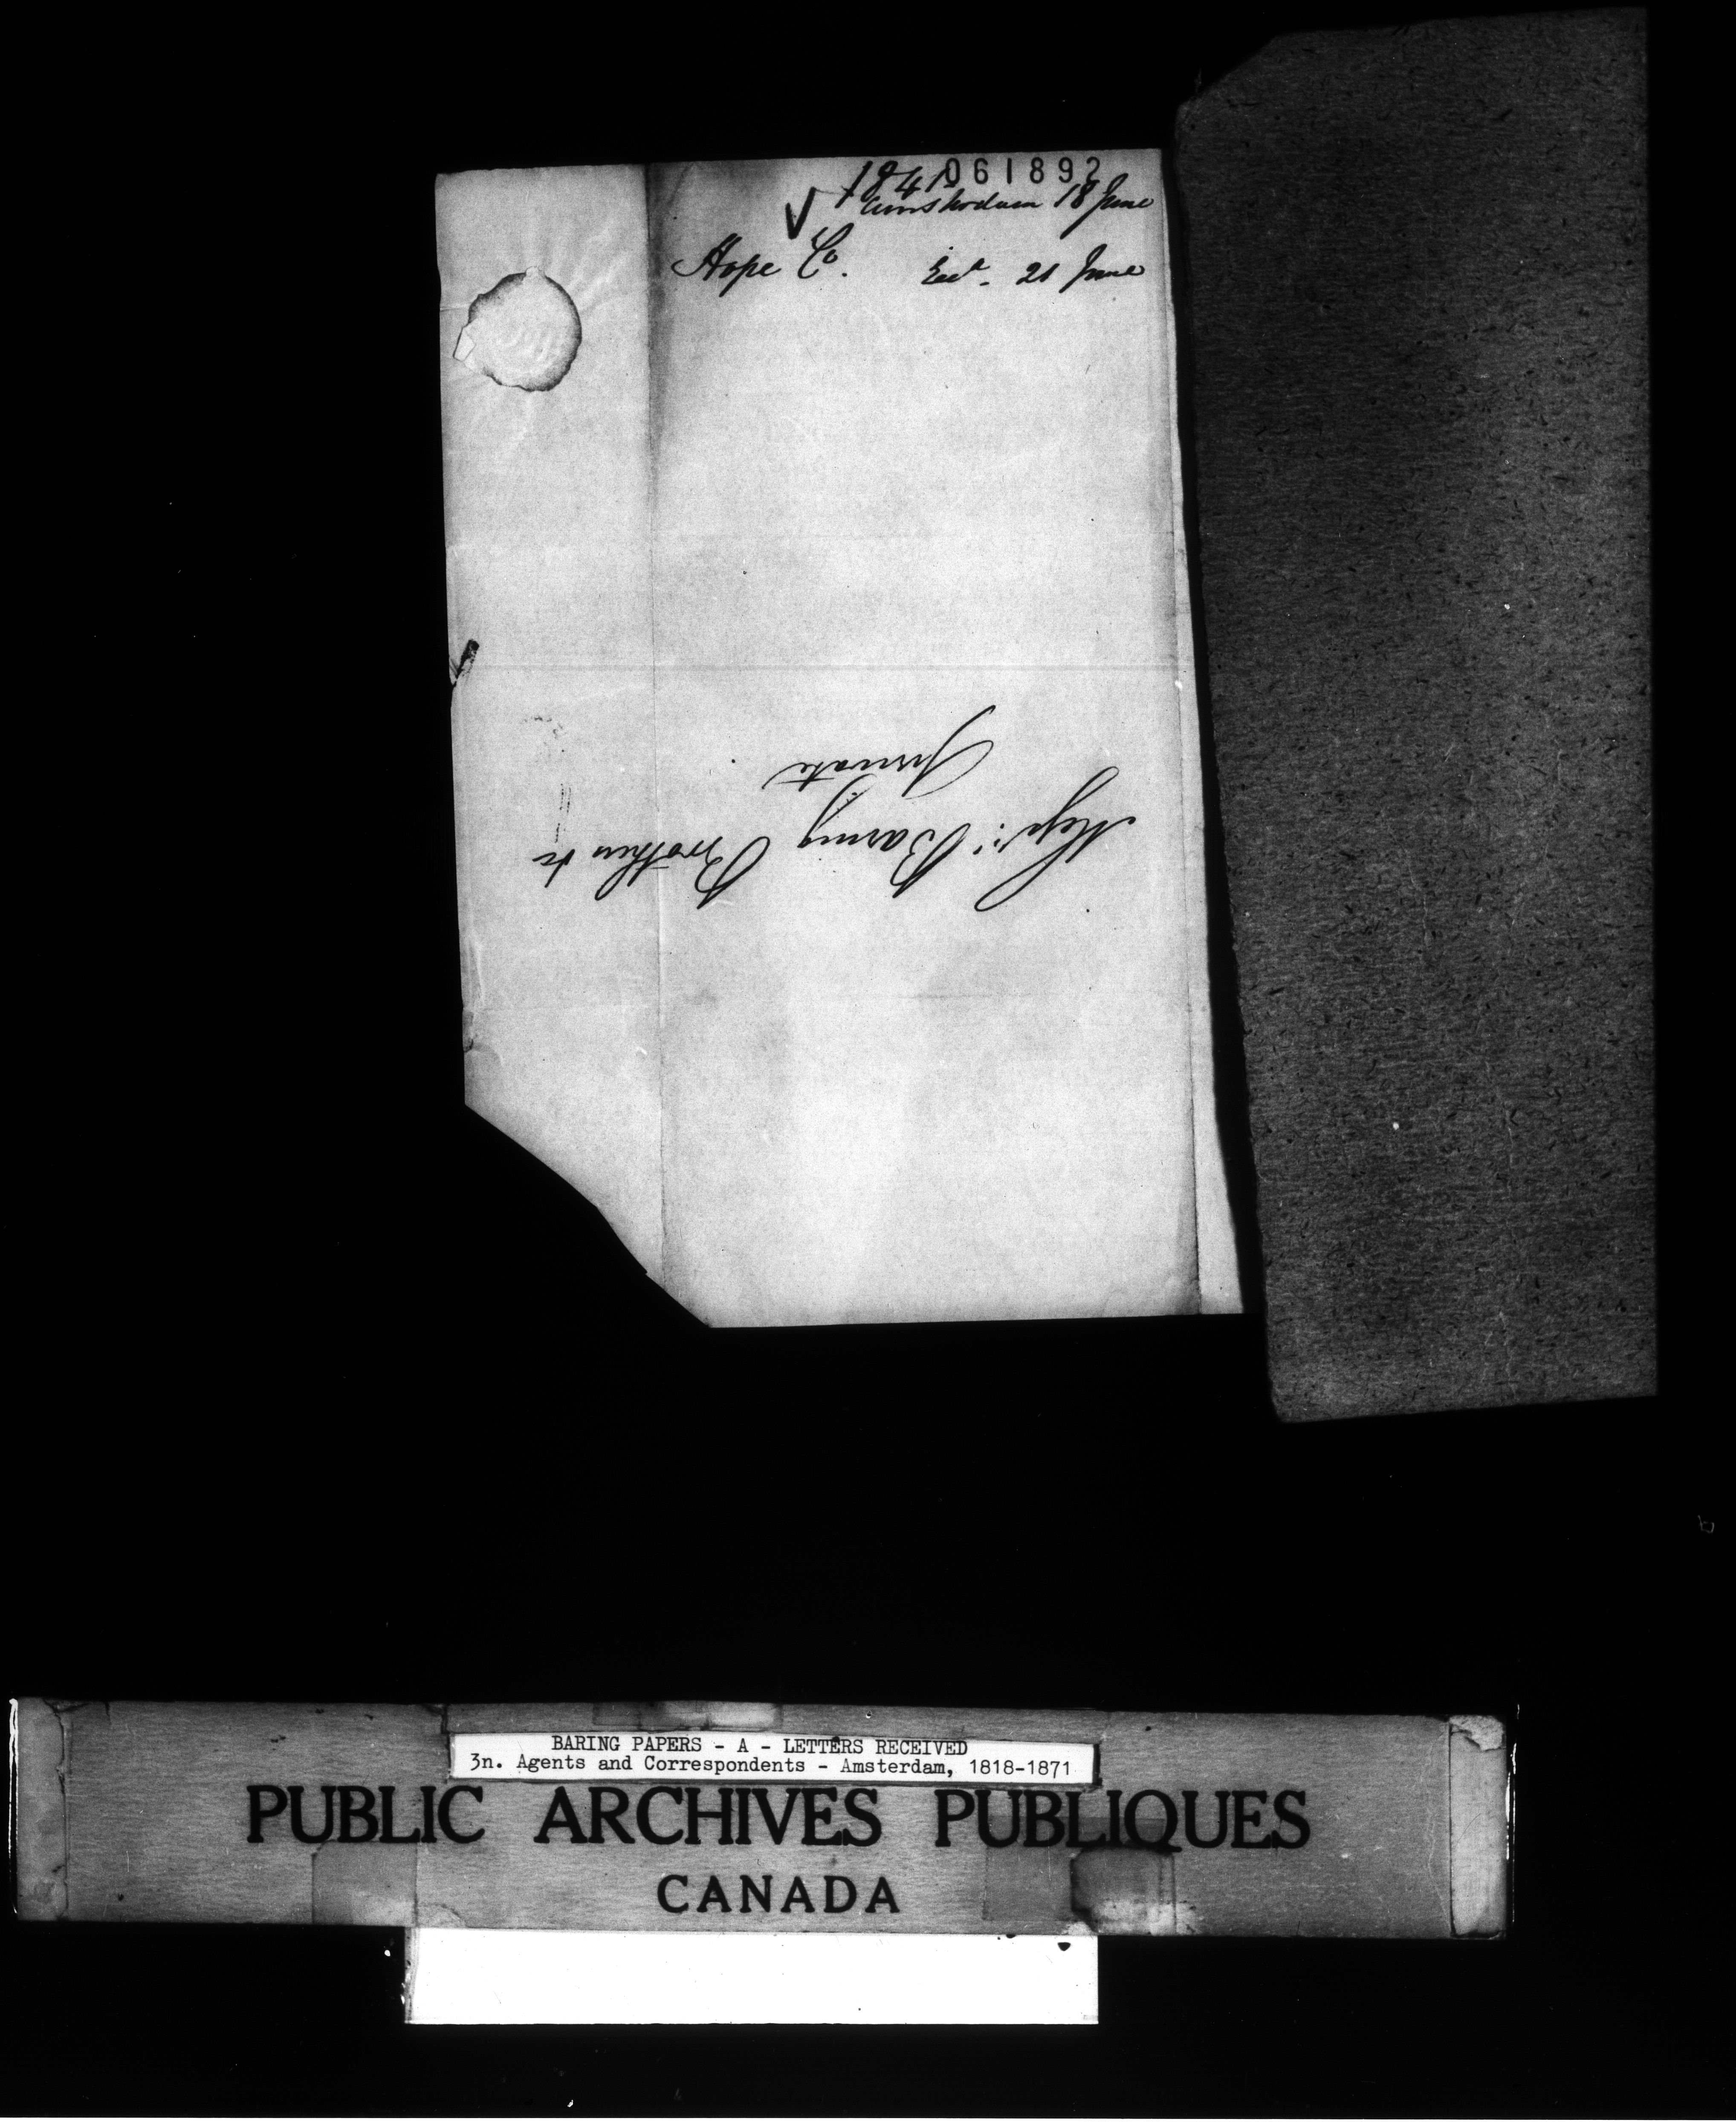 1841 061892
Amsterdam 18 June
Hope Co. Recd. 21 June
Private
Messrs. Baring Brothers &c
BARING PAPERS - A - LETTERS RECEIVED
3n. Agents and Correspondents - Amsterdam, 1818-1871
PUBLIC ARCHIVES PUBLIQUES
CANADA